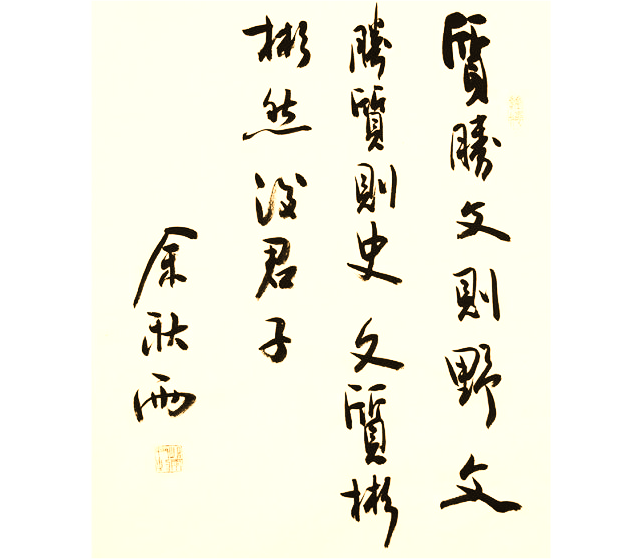 質勝文則野文
勝質則史文質彬
彬然後君子
余秋雨